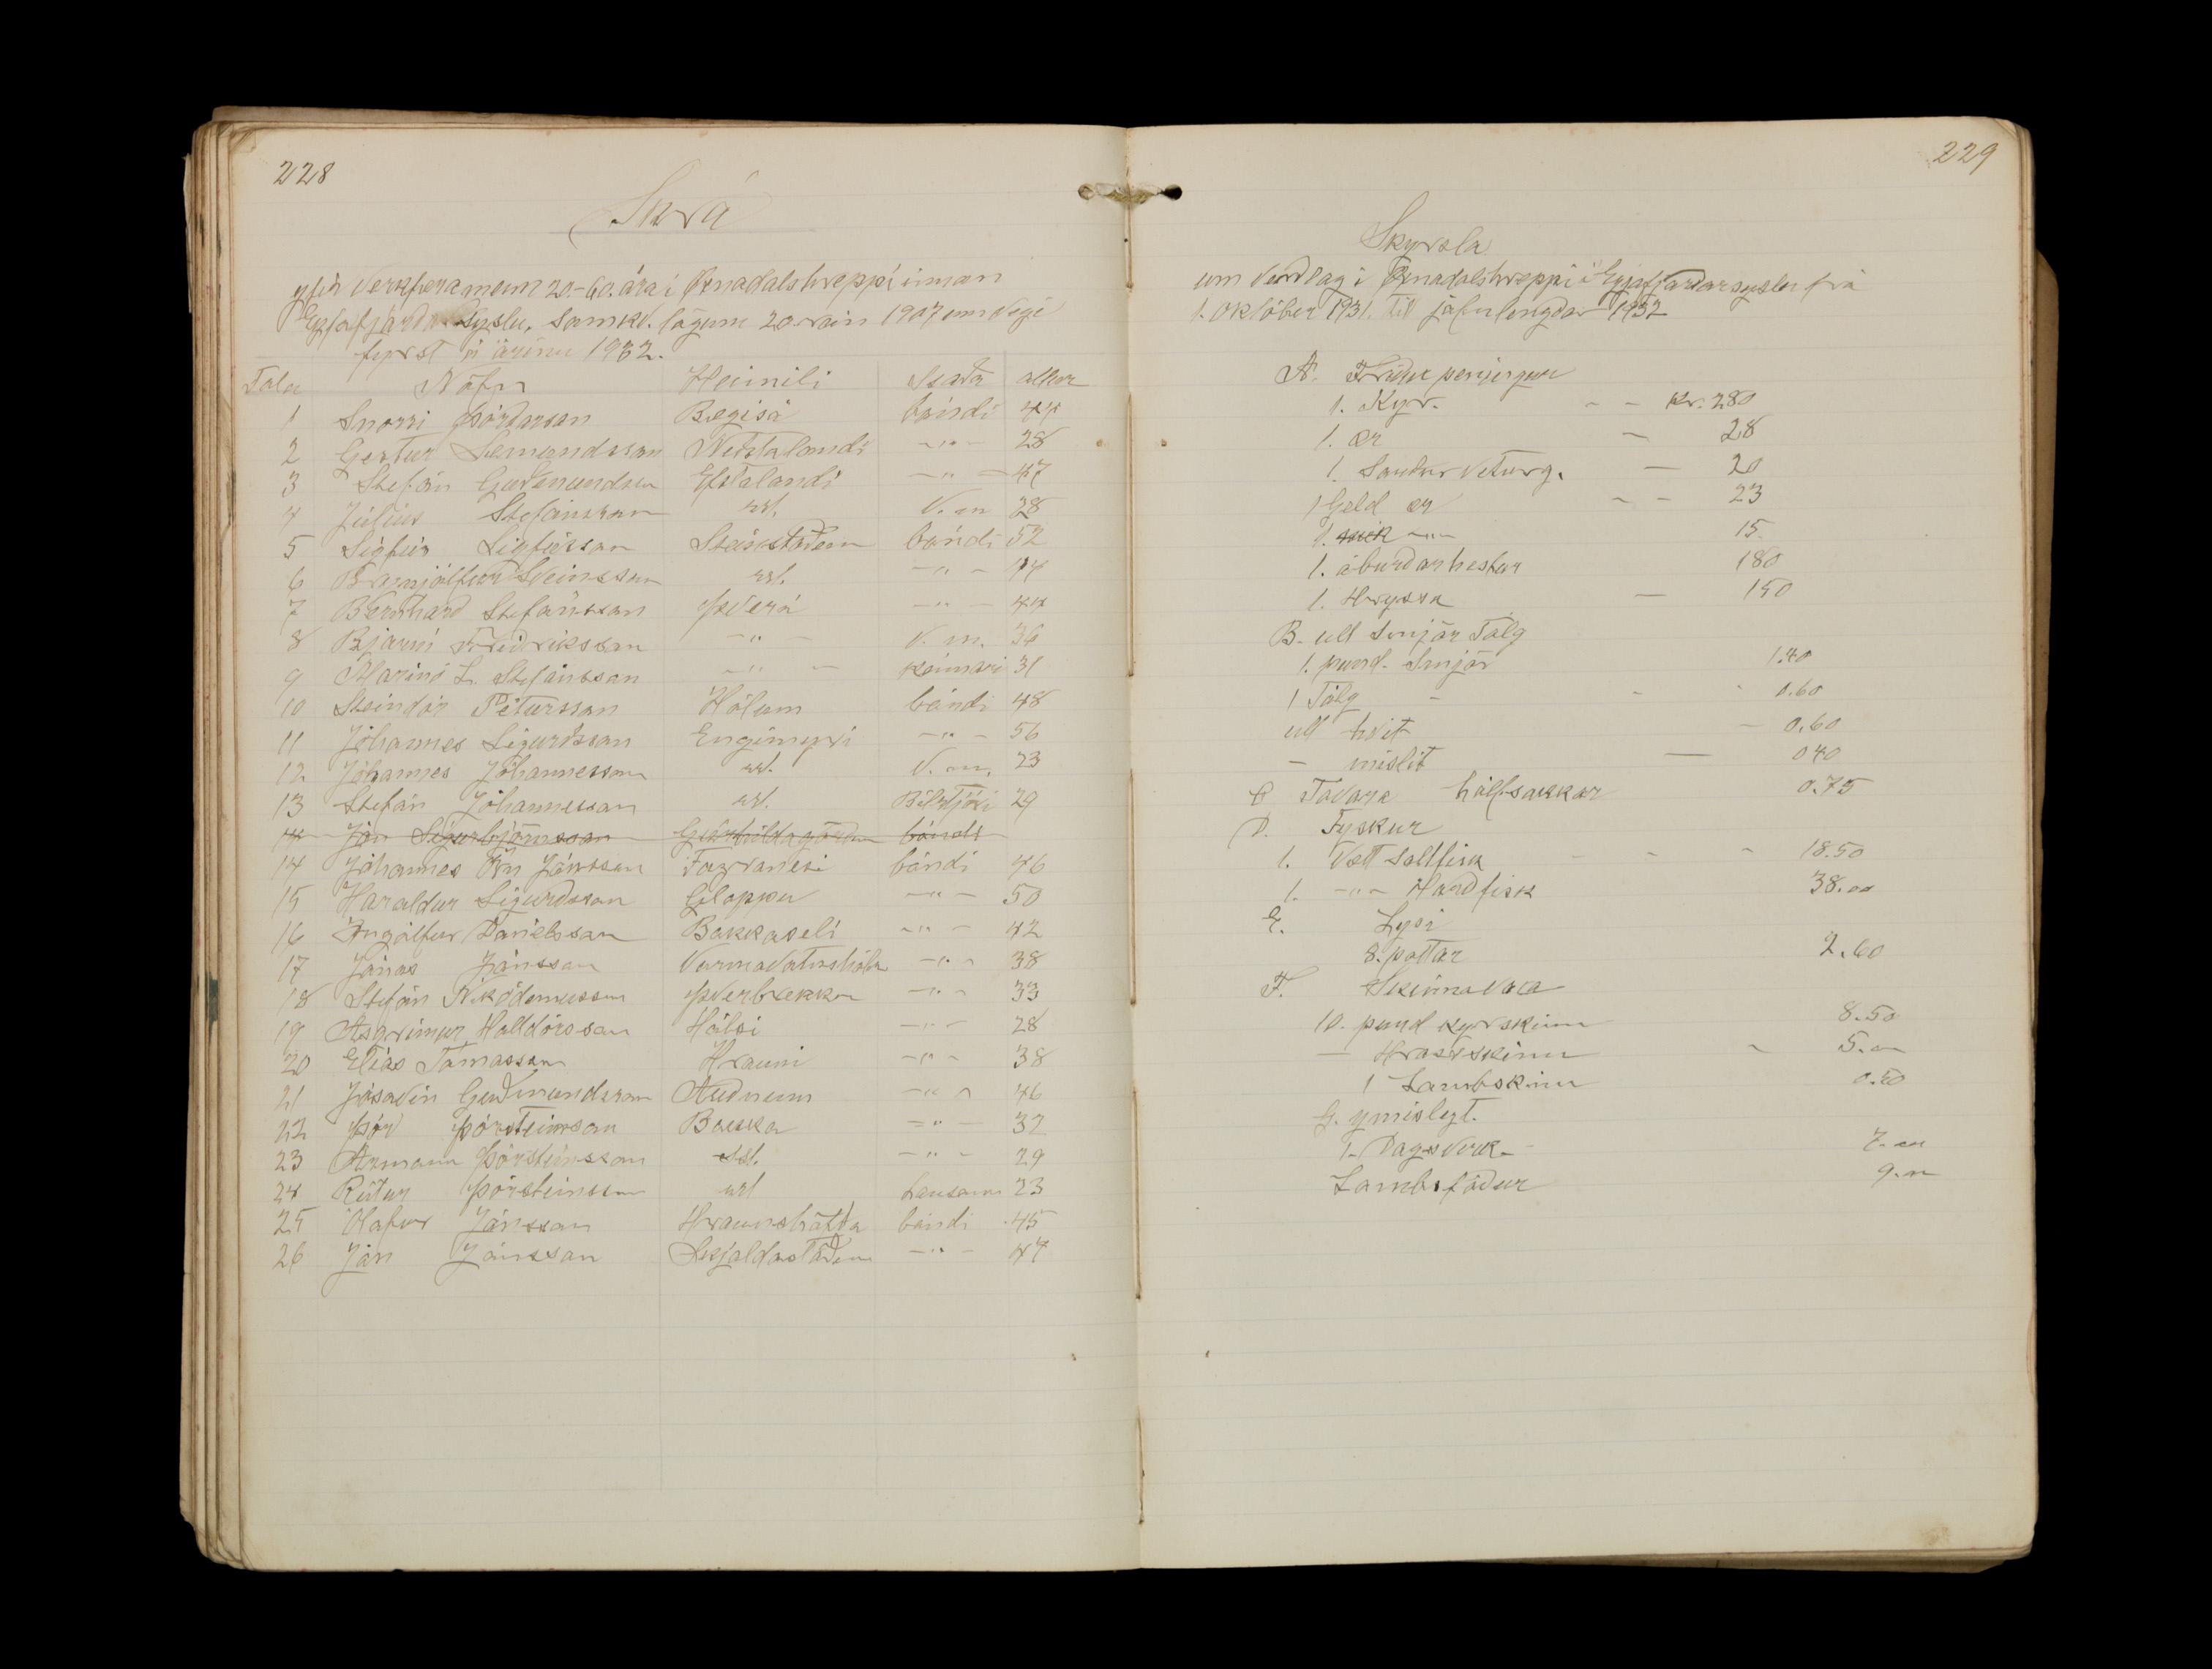 228
Skrá
yfir Verkfæra menn 20.-60. ára í Öxnadalshreppi innan
Eyjafjarðarsýslu, samkv. lögum 20 1907 um Vegi
fyrst á árinu 1932.
Tala Nöfn Heimili Staða aldur
1 Snorri Þórðarson Bægisá bóndi 44
2 Gestur Sæmundsson Neðstalandi -"- 28
3 Stefán Guðmundsson Efstalandi -"- 47
4 Júlíus Stefánsson ss. V.m 28
5 Sigfús Sigfússon Steinsstöðum bóndi 52
6 Brynjólfur Sveinsson ss. -"- 44
7 Bernharð Stefánsson Þverá -"- 44
8 Bjarni Friðriksson -"- V.m. 36
9 Marinó L. Stefánsson -"- kennari 31
10 Steindór Pétursson Hólum bóndi 48
11 Jóhannes Sigurðsson Engimýri -"- 56
12 Jóhannes Jóhannesson ss. V.m. 23
13 Stefán Jóhannesson ss. Bílstjóri 29
14 Jón Sigurbjörnsson Geirhildagörðum bóndi
14 Jóhannes Örn Jónsson Fagranesi bóndi 46
15 Haraldur Sigurðsson Gloppu -"- 50
16 Ingólfur Daníelsson Bakkaseli -"- 42
17 Jónas Jónsson Varmavatnshólum -"- 38
18 Stefán Nikódemusson Þverbrekku -"- 33
19 Ásgrímur Halldórsson Hálsi -"- 28
20 Elías Tómasson Hrauni -"- 38
21 Jósavin Guðmundsson Auðnum -"- 46
22 Þór Þorsteinsson Bakka -"- 32
23 Ármann Þorsteinsson ss. -"- 29
24 Rútur Þorsteinsson ss Lausam 23
25 Ólafur Jónsson Hraunshöfða bóndi 45
26 Jón Jónsson Skjaldastöðum -"- 47
229
Skyrsla
um Verðlag í Öxnadalshreppi í Eyjafjarðarsyslu frá
1. október 1931. til jafnlengdar 1932
A. Fríður peningur
1. Kyr. - - Kr. 280
1. ær - 28
1. Sauður veturg. - 20
1 Geld ær - - 23
1. -"- 15.
1. áburðarhestur 180
1. Hryssa - 150
B. ull smjör Tólg
1. pund. Smjör 1.40
1 Tólg - - - 0.60
ull hvít - 0.60
- mislit - 0 40
C Tóvara hálfsokkar 0.75
D. Fyskur
1. Vætt saltfisk - - - 18.50
1. -"- Harðfisk 38.00
E. Lysi
8. pottar 2.60
F. Skinnavara
10. pund kyrskinn 8.50
- Hrossskinn - 5.00
1 Lambskinn 0.50
G. ymislegt.
1. Dagsverk - 7.00
Lambsfóður 9.00